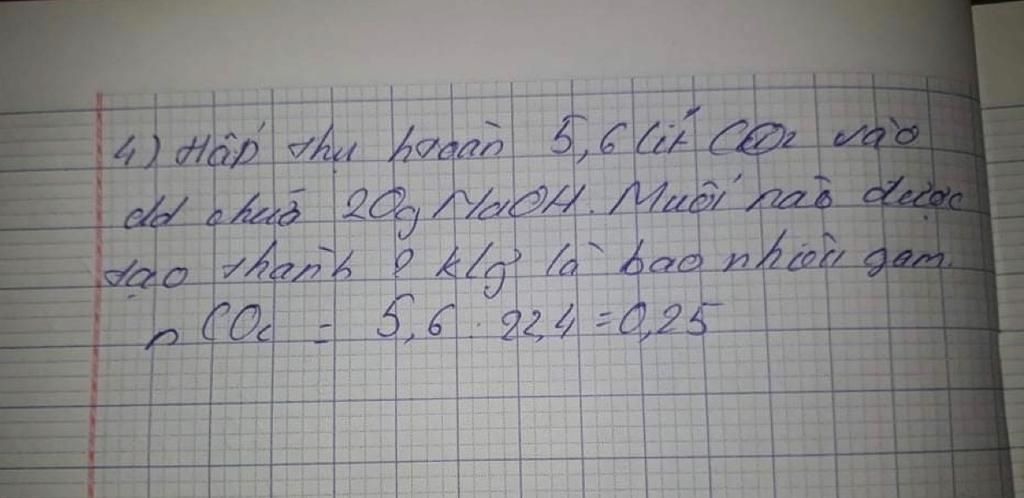 4) Hấp thụ htoàn 5,6 lít CO2 vào
dd chứa 20g NaOH. Muối nào được
tạo thành ? klg là bao nhiêu gam.
n CO2 = 5,6 : 22,4 = 0,25